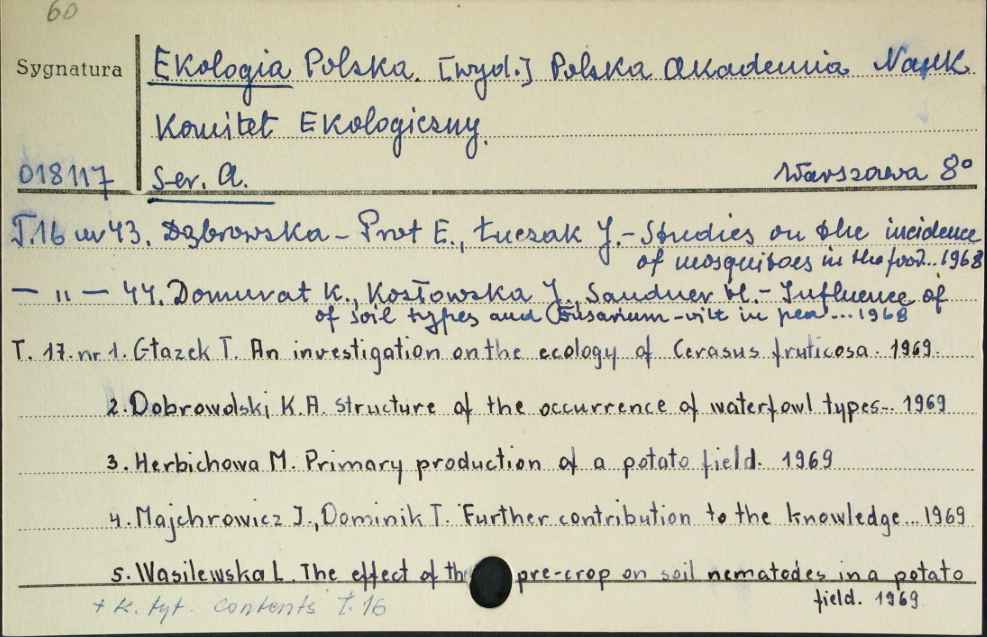 60
Sygnatura
Ekologia Polska. [wyd.] Polska Akademia Nauk
Komitet Ekologiczny.
018117 Ser. A. Warszawa 8°
T.16 nr 43. Dąbrowska-Prot E., Łuczak J.- Studies on the incidence
of mosquitoes in the food...1968
— " — 44. Domurat K., Kozłowska J., Sandner H.- Influence of
of soil types and Fusarium-wilt in pea...1968
T. 17. nr 1. Głazek T. An investigation on the ecology of Cerasus fruticosa. 1969.
2. Dobrowolski K.A. Structure of the occurrence of waterfowl types... 1969
3. Herbichowa M. Primary production of a potato field. 1969
4. Majchrowicz I., Dominik T. Further contribution to the knowledge... 1969
5. Wasilewska L. The effect of the pre-crop on soil nematodes in a potato
field. 1969.
+ k. tyt. contents t. 16